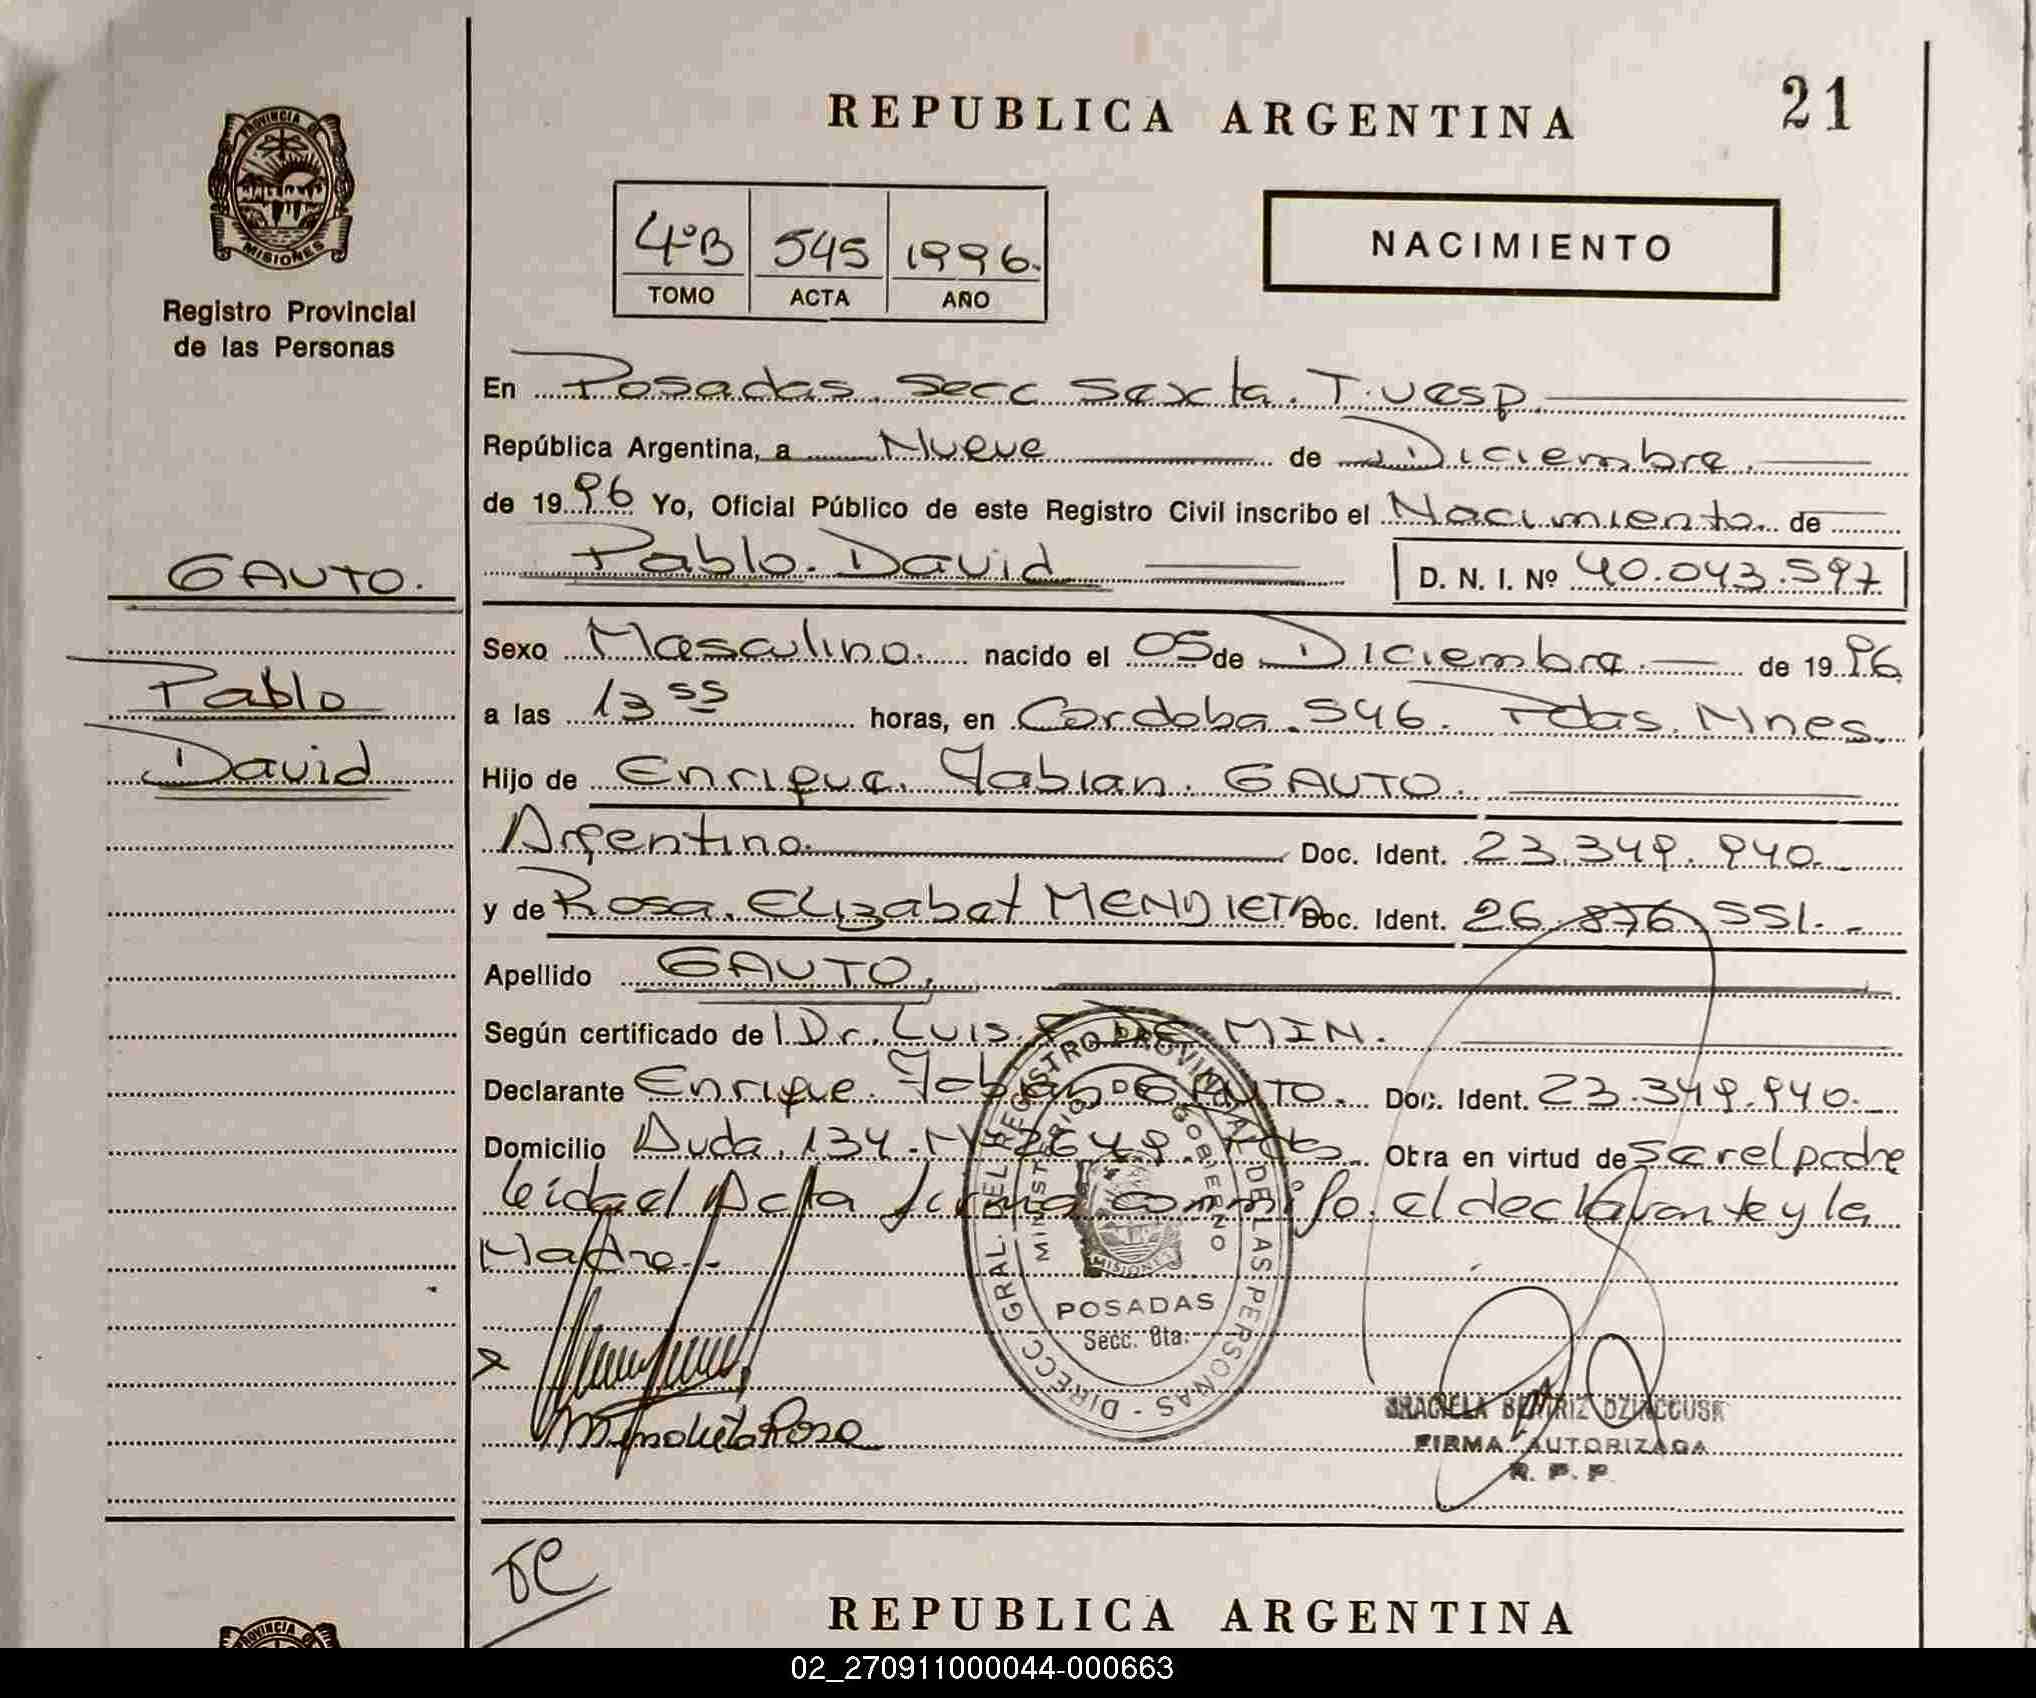 REPUBLICA ARGENTINA
21
PROVINCIA DE
MISIONES
Registro Provincial
de las Personas
4ºB 545 1996.
TOMO ACTA AÑO
NACIMIENTO
En Posadas. Secc Sexta. T. Vesp.
República Argentina, a Nueve de Diciembre.
de 1996 Yo, Oficial Público de este Registro Civil inscribo el Nacimiento de
Pablo. David D. N. I. Nº 40.043.597
GAUTO.
Pablo
David
Sexo Masculino. nacido el 05 de Diciembre. de 1996
a las 13 55 horas, en Cordoba. 546. Pdas. Mnes.
Hijo de Enrique. Fabian. GAUTO.
Argentino. Doc. Ident. 23.349.940.
y de Rosa. Elizabet MENDIETA Doc. Ident. 26.876 551.
Apellido GAUTO.
Según certificado de l Dr. Luis. F. DE MIN.
Declarante Enrique. Fabian GAUTO. Doc. Ident. 23.349.940.
Domicilio 134. 2649. Pdas. Obra en virtud de ser el padre
leida el Acta firma conmigo. el declarante y la
Madre.
DIRECC. GRAL. DEL REGISTRO PROVINCIAL DE LAS PERSONAS
MINISTERIO DE GOBIERNO
MISIONES
POSADAS
Secc. 6ta.
Mendieta Rosa
GRACIELA BEATRIZ
FIRMA AUTORIZADA
R. P. P.
REPUBLICA ARGENTINA
PROVINCIA DE
02_270911000044-000663